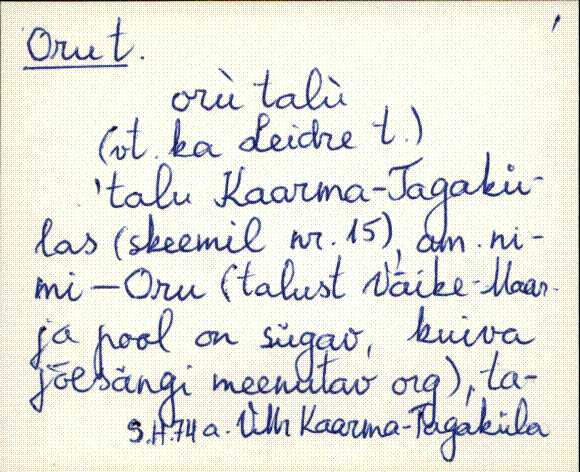 Oru t.
orù talù
(vt. ka Leidre t.)
'talu Kaarma-Tagakü-
las (skeemil nr. 15), am. ni-
mi — Oru (talust Väike-Maar-
ja pool on sügav, kuiva
jõesängi meenutav org), ta-
S.H. 74 a. VMr Kaarma-Tagaküla